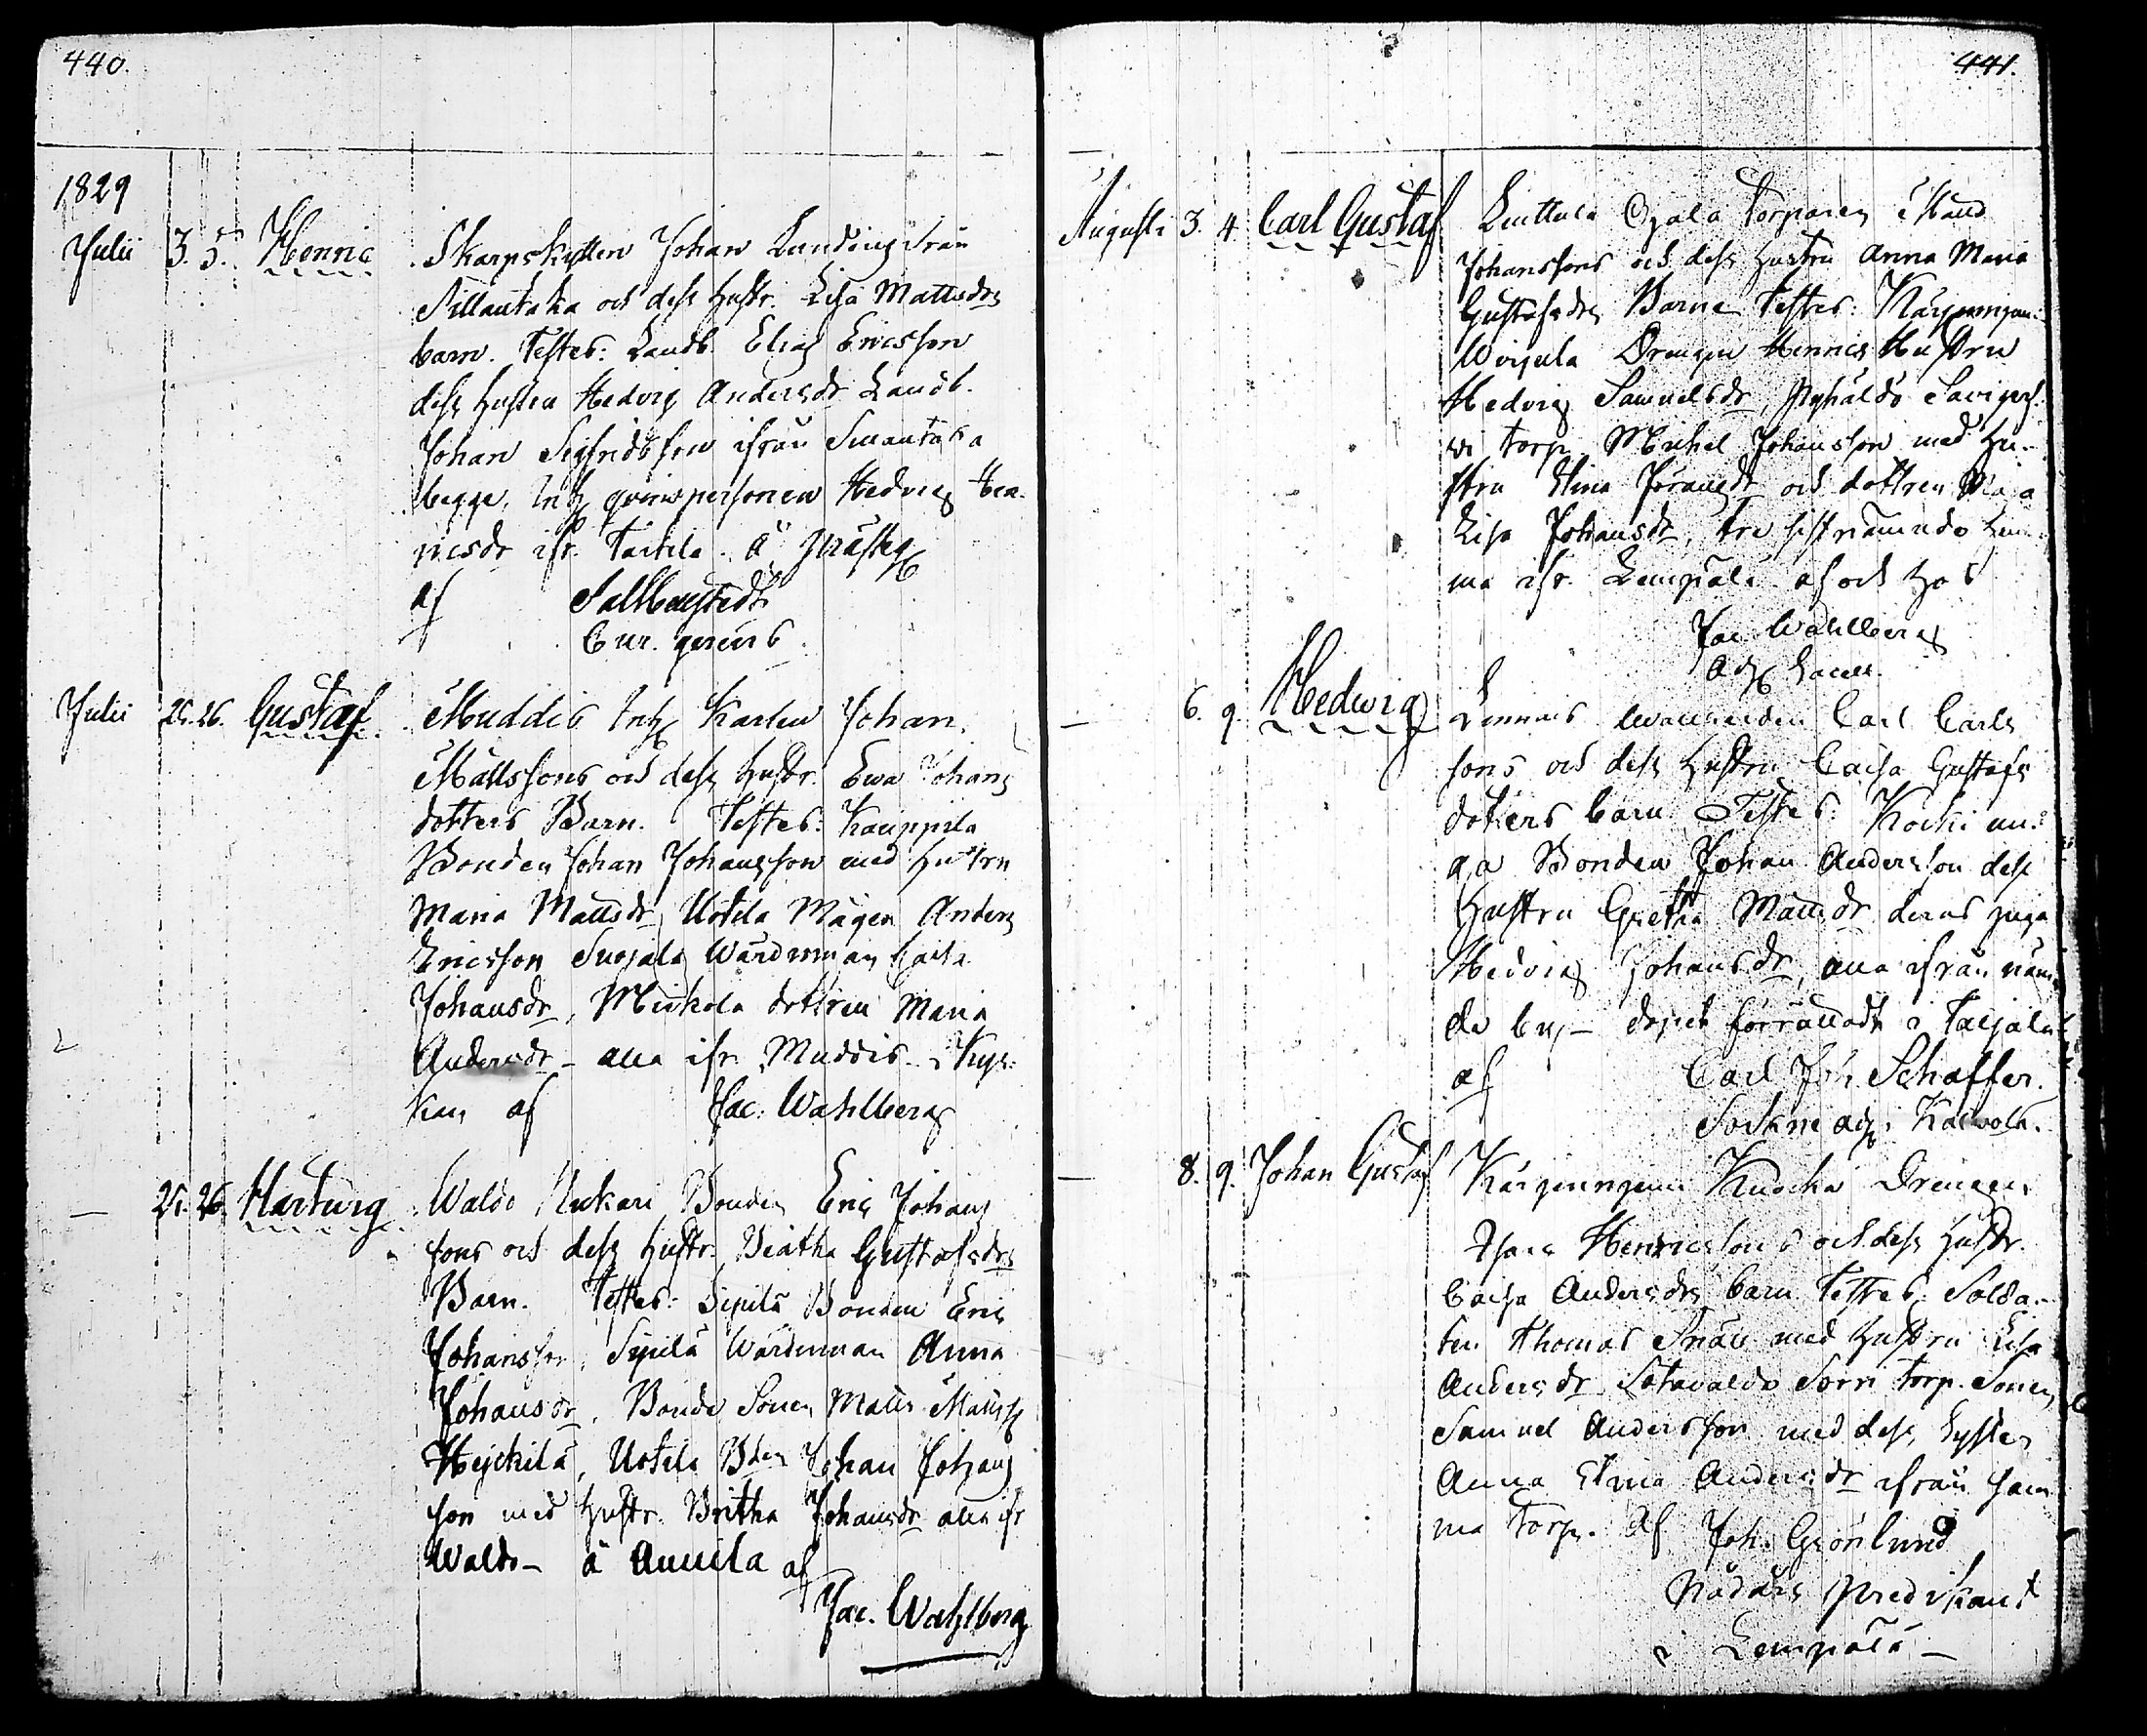 440.
1829
Julii 3. 5. Henric Skarpskytten Johan Lunding från
Sillantaka och dess hustr. Lisa Mattsdrs
barn. Testes: Landb. Elias Ericsson
dess hustru Hedvig Andersdr Landb.
Johan Sigfridsson ifrån Sinantaka
begge, Inh qvinspersonen Hedvig Hen-
ricsdr ifr. Tackila. å Prästeg
af Sallmstedt
Cur. gerens.
Julii 25. 26. Gustaf. Muddis Inh Karlen Johan
Mattssons och dess hustr. Ewa Johans
dotters Barn. Testes: Kauppila
Bonden Johan Johansson med hustru
Maria Mattsdr, Uotila Mågen Anders
Ericsson Suojala Wärdinnan Caisa
Johansdr, Mickola dottren Maria
Andersdr – alla ifr. Muddis – i Kyr-
kan af Jac. Wahlberg
— 25. 26. Hartvig Waldo Uckari Bonden Eric Johans
sons och dess hustr. Beatha Gustafsdrs
Barn. Testes: Sipilä Bonden Eric
Johansson, Sipilä Wärdinnan Anna
Johansdr, Bonde Sonen Matts Mattss
Heickilä, Uotila Bden Johan Johans
son med hustr. Britha Johansdr alla ifr
Waldo – å Annila af
Jac. Wahlberg
441.
Augusti 3. 4. Carl Gustaf Luttula Ojala torparen
Johanssons och dess hustru Anna Maria
Gustafsdrs Barn Testes:
Drengen Henrics Hustru
Hedvig Samuelsdr,
torp Michel Johansson med hu-
stru Stina Göransdr och dottren Maja
Lisa Johansdr, tre sistnämnde hem-
ma ifr. Lempälä. af och hos
Jac Wahlberg
Adj
— 6. 9. Hedwig Carl Carls
sons och dess hustru Caisa Gustafs
dotters barn Testes:
Bonden Johan Andersson dess
hustru Gretha Mattsdr deras piga
Hedvig Johansdr, alla ifrån näm-
de by, – dopet förrättadt i
af Carl Joh Schaffer.
Sockne adj. i Kalvola.
— 8. 9. Johan Gustaf Drengen
Henricssons och dess hustr.
Caisa Andersdrs barn Testes: Solda-
ten Thomas Snäll med hustru Lisa
Andersdr Sotavaldo Sorri torp. Sonen
Samuel Andersson med dess Syster
Anna Stina Andersdr ifrån sam-
ma torp. Af Joh. Grönlund
Nådårs Predikant
i Lempälä –